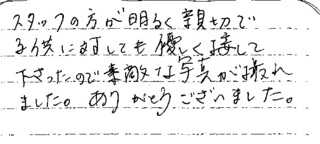 スタッフの方が明るく親切で
子供に対しても優しく接して
下さったので素敵な写真が撮れ
ました。ありがとうございました。